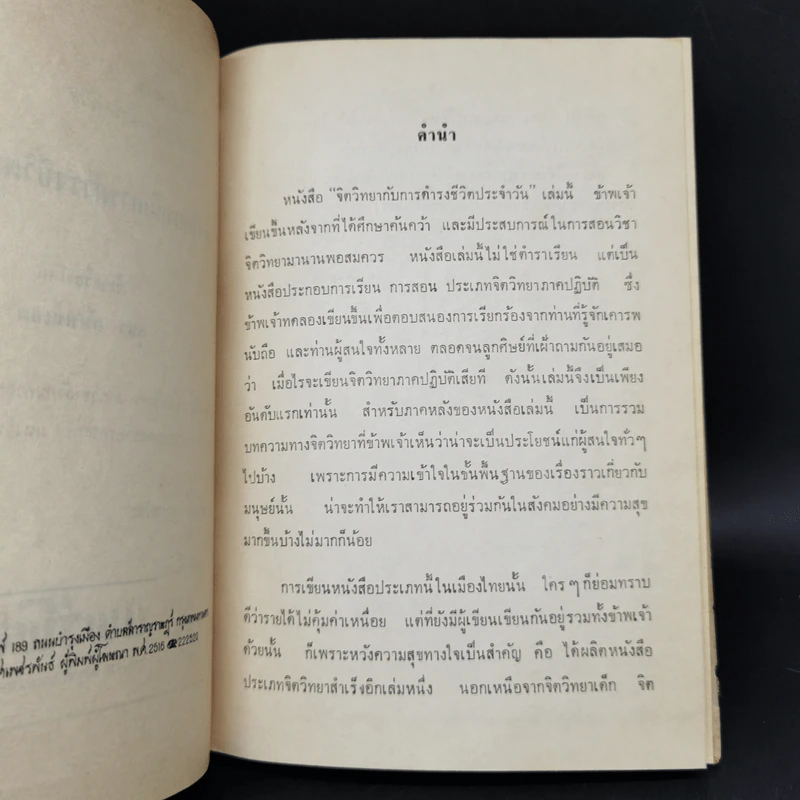 พ์ 189 ถนนบำรุงเมือง ตำบลสำราญราษฎร์
พ.ศ. 2516 ☎ 222520
คำนำ
หนังสือ "จิตวิทยากับการดำรงชีวิตประจำวัน" เล่มนี้ ข้าพเจ้า
เขียนขึ้นหลังจากที่ได้ศึกษาค้นคว้า และมีประสบการณ์ในการสอนวิชา
จิตวิทยามานานพอสมควร หนังสือเล่มนี้ไม่ใช่ตำราเรียน แต่เป็น
หนังสือประกอบการเรียน การสอน ประเภทจิตวิทยาภาคปฏิบัติ ซึ่ง
ข้าพเจ้าทดลองเขียนขึ้นเพื่อตอบสนองการเรียกร้องจากท่านที่รู้จักเคารพ
นับถือ และท่านผู้สนใจทั้งหลาย ตลอดจนลูกศิษย์ที่เฝ้าถามกันอยู่เสมอ
ว่า เมื่อไรจะเขียนจิตวิทยาภาคปฏิบัติเสียที ดังนั้นเล่มนี้จึงเป็นเพียง
อันดับแรกเท่านั้น สำหรับภาคหลังของหนังสือเล่มนี้ เป็นการรวม
บทความทางจิตวิทยาที่ข้าพเจ้าเห็นว่าน่าจะเป็นประโยชน์แก่ผู้สนใจทั่วๆ
ไปบ้าง เพราะการมีความเข้าใจในขั้นพื้นฐานของเรื่องราวเกี่ยวกับ
มนุษย์นั้น น่าจะทำให้เราสามารถอยู่ร่วมกันในสังคมอย่างมีความสุข
มากขึ้นบ้างไม่มากก็น้อย
การเขียนหนังสือประเภทนี้ในเมืองไทยนั้น ใครๆ ก็ย่อมทราบ
ดีว่ารายได้ไม่คุ้มค่าเหนื่อย แต่ที่ยังมีผู้เขียนเขียนกันอยู่รวมทั้งข้าพเจ้า
ด้วยนั้น ก็เพราะหวังความสุขทางใจเป็นสำคัญ คือ ได้ผลิตหนังสือ
ประเภทจิตวิทยาสำเร็จอีกเล่มหนึ่ง นอกเหนือจากจิตวิทยาเด็ก จิต